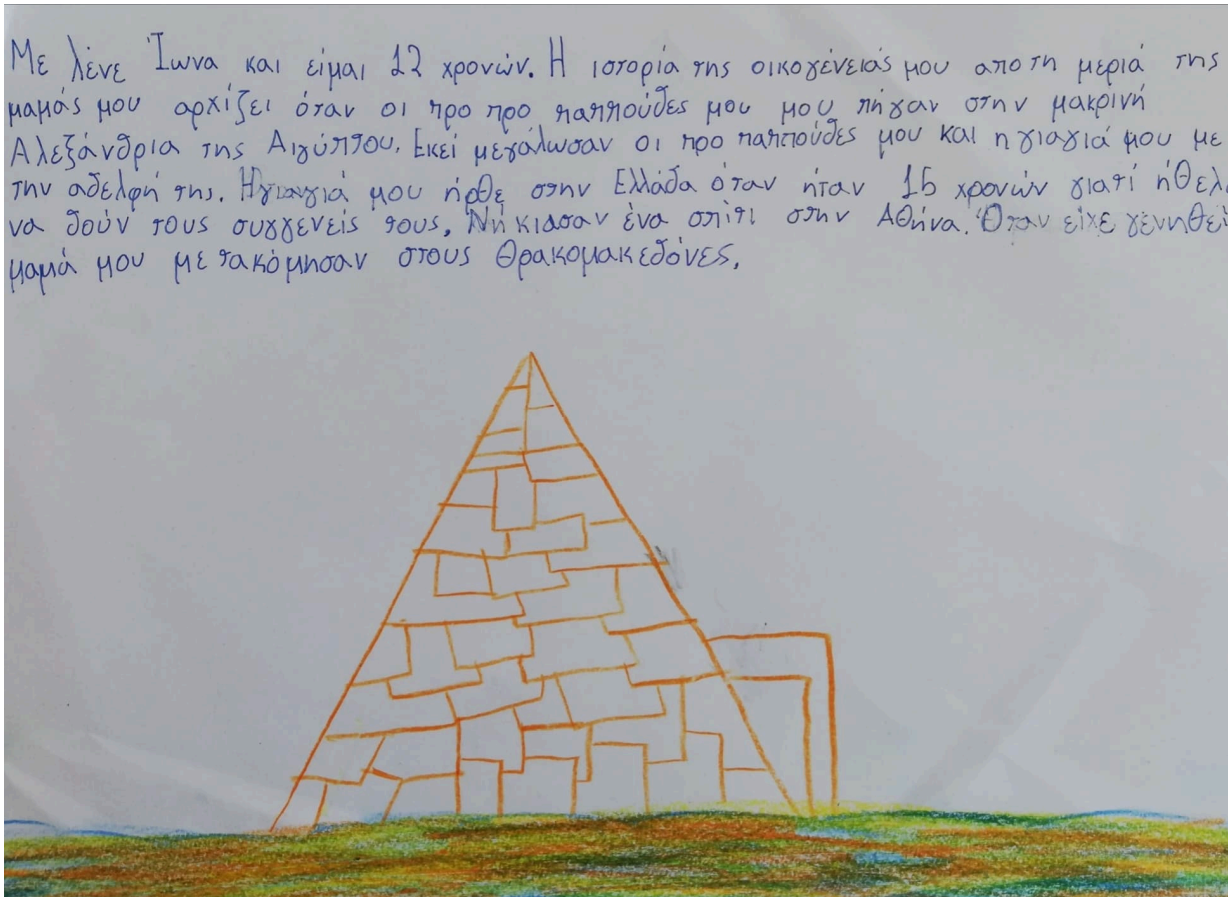 Με λένε Ίωνα και είμαι 12 χρονών. Η ιστορία της οικογένειάς μου απο τη μεριά της
μαμάς μου αρχίζει όταν οι προ προ παππούδες μου μου πήγαν στην μακρινή
Αλεξάνδρια της Αιγύπτου. Εκεί μεγάλωσαν οι προ παππούδες μου και η γιαγιά μου με
την αδελφή της. Η γιαγιά μου ήρθε στην Ελλάδα όταν ήταν 15 χρονών γιατί ήθελ
να δούν τους συγγενείς τους. Νήκιασαν ένα σπίτι στην Αθήνα. Όταν είχε γεννηθεί
μαμά μου μετακόμησαν στους Θρακομακεδόνες.